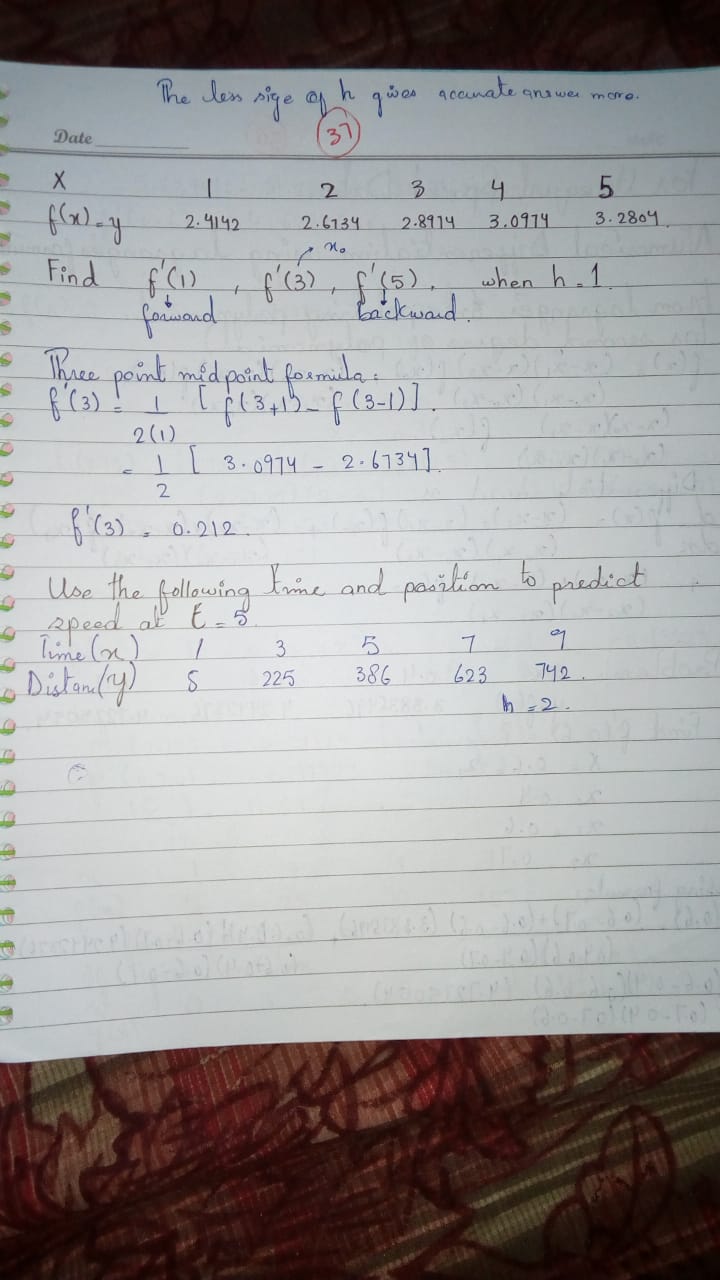 The less size of h gives accurate answer more.
37
Date
X 1 2 3 4 5
f(x)=y 2.4142 2.6734 2.8974 3.0974 3.2804.
x₀
Find f'(1), f'(3), f'(5), when h=1.
forward backward.
Three point midpoint formula:
f'(3) = 1 [f(3+1) - f(3-1)].
2(1)
= 1 [3.0974 - 2.6734].
2
f'(3) = 0.212.
Use the following time and position to predict
speed at t=5
Time(x) 1 3 5 7 9
Distan(y) 5 225 386 623 742.
h=2.